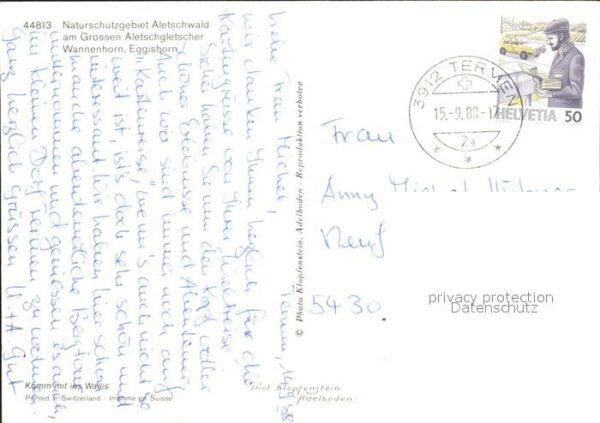 44813 Naturschutzgebiet Aletschwald
am Grossen Aletschgletscher
Wannenhorn, Eggishorn
Termen,
Liebe Frau Michel,
wir danken Ihnen herzlich für die
Kartengrüsse von Ihrer
Sicher haben Sie nun den Kopf voller
schöner Erlebnisse und Abenteuer.
Auch wir sind immer noch auf
"Kartenreise", wenn's auch nicht so
weit ist, ist's doch sehr schön und
interessant. Wir haben hier schon
manche abenteuerliche Bergtour
unternommen und geniessen es auch,
im kleinen Dorf Termen zu wohnen.
Ganz herzlich grüssen
Komm mit ins Wallis
Printed in Switzerland - Imprimé en Suisse
© Photo Klopfenstein, Adelboden - Reproduktion verboten
Phot Klopfenstein
Adelboden
3912 TERMEN
15.-9.88-17
2a
HELVETIA 50
Frau
Anny Michel
5430
privacy protection
Datenschutz